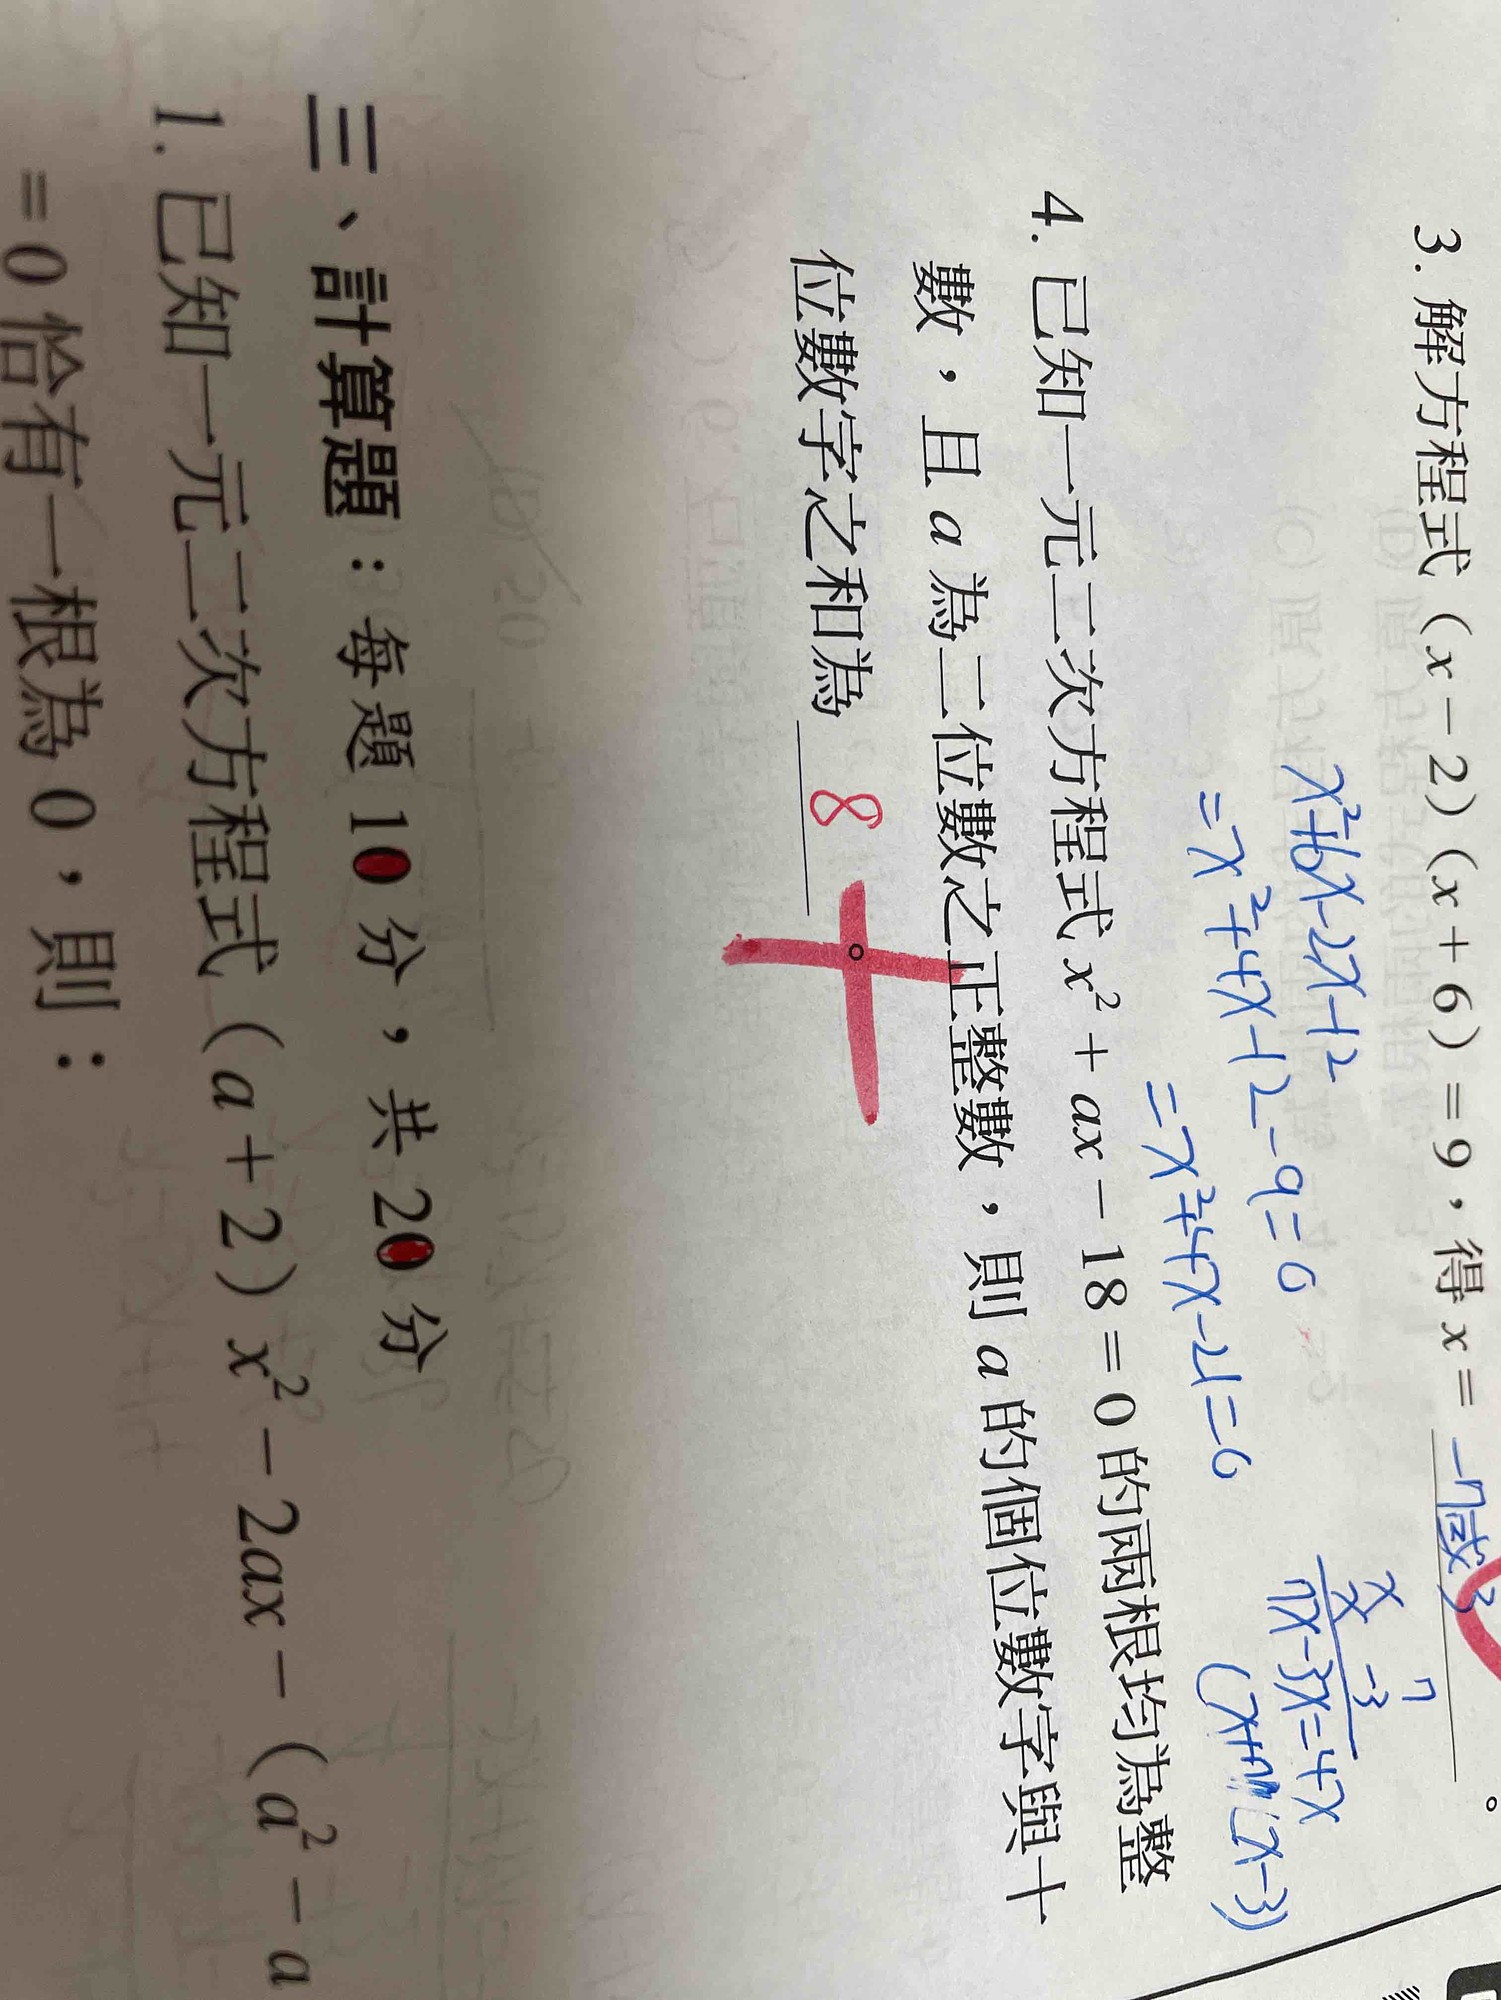 3. 解方程式（x－2）（x＋6）＝9，得 x＝ -7或3 。
x²+6x-2x-12
=x²+4x-12-9=0
=x²+4x-21=0
x 7
x -3
7x-3x=4x
4. 已知一元二次方程式 x²＋ax－18＝0 的兩根均為整
數，且 a 為二位數之正整數，則 a 的個位數字與十
位數字之和為 8 。
三、計算題：每題 10 分，共 20 分
1. 已知一元二次方程式（a＋2）x²－2ax－（a²－a
＝0 恰有一根為 0，則：